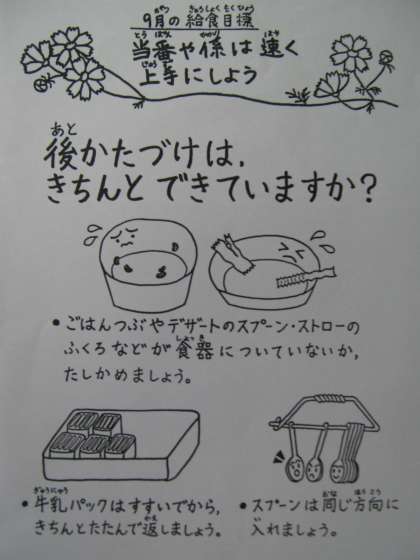 9月の給食目標
当番や係は速く
上手にしよう
後かたづけは、
きちんとできていますか?
・ごはんつぶやデザートのスプーン・ストローの
ふくろなどが食器についていないか、
たしかめましょう。
・牛乳パックはすすいでから、
きちんとたたんで返しましょう。
・スプーンは同じ方向に
入れましょう。